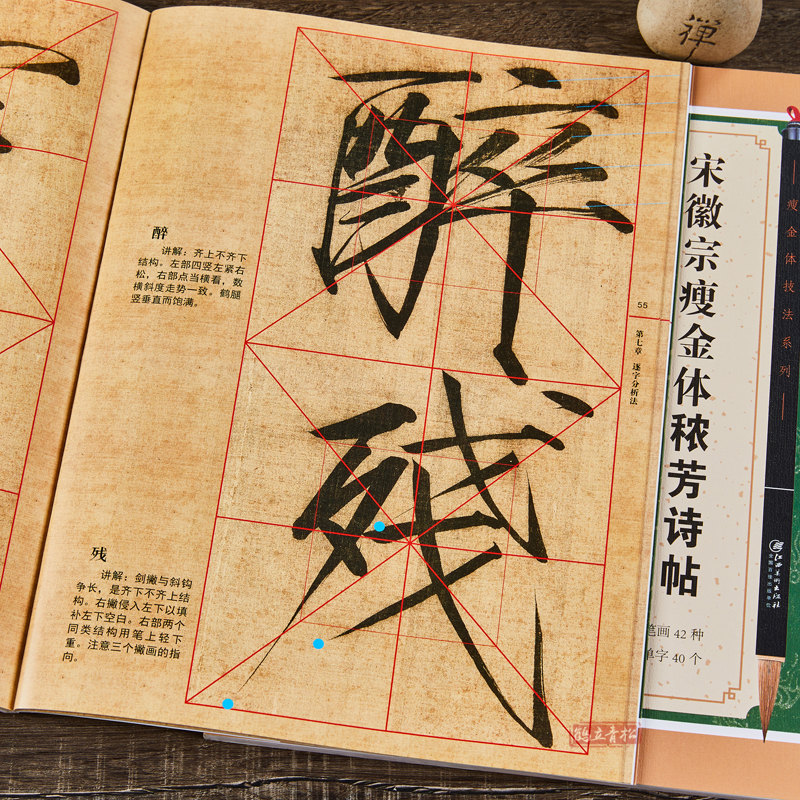 醉
醉
讲解：齐上不齐下
结构。左部四竖左紧右
松，右部点当横看，数
横斜度走势一致。鹤腿
竖垂直而饱满。
残
残
讲解：剑撇与斜钩
争长，是齐下不齐上结
构。右撇侵入左下以填
补左下空白。右部两个
同类结构用笔上轻下
重。注意三个撇画的指
向。
55
第七章 逐字分析法
鹤立青松
禅
宋徽宗瘦金体秾芳诗帖
瘦金体技法系列
笔画 42 种
单字 40 个
江西美术出版社
全国百佳出版单位